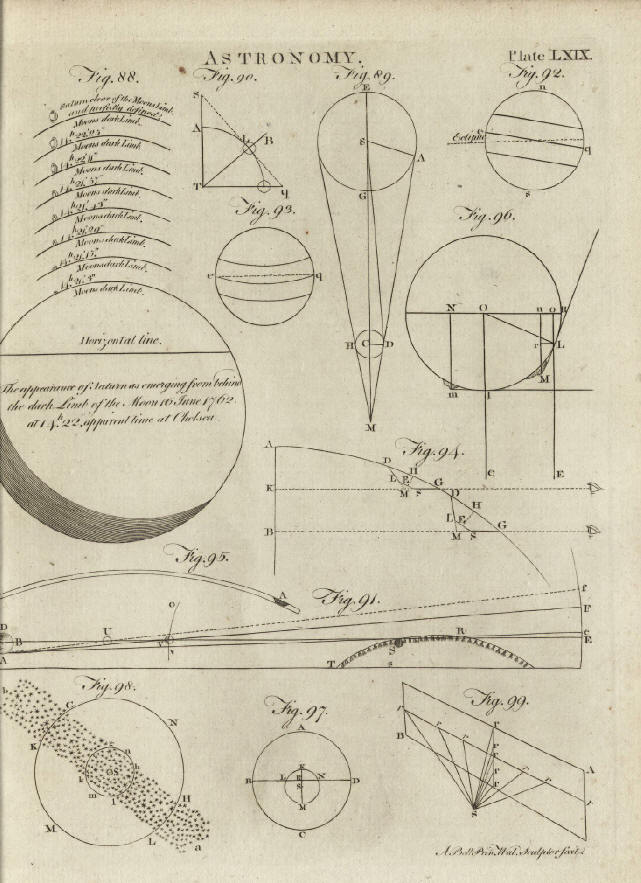 ASTRONOMY.
Plate LXIX.
Fig. 88.
Fig. 90.
Fig. 89.
Fig. 92.
Saturn clear of the Moons Limb
and perfectly defined
Moons dark Limb.
Moons dark Limb
Moons dark Limb.
Moons dark Limb.
Moons dark Limb.
Moons dark Limb.
Moons dark Limb
Moons dark Limb.
S
A
B
T
q
E
S
A
G
H
C
D
M
n
Ecliptic
q
s
Fig. 93.
e
q
Fig. 96.
N
O
n
o
B
r
L
M
m
l
C
E
Horizontal line.
The appearance of Saturn as emerging from behind
the dark Limb of the Moon 16 June 1762
apparent time at Chelsea.
Fig. 94.
A
D
H
L
E
G
K
M
S
D
H
L
E
G
B
M
S
Fig. 95.
A
Fig. 91.
o
f
F
D
B
U
V
R
e
E
A
S
T
s
Fig. 98.
b
C
N
K
n
h
k
S
m
l
H
M
L
a
Fig. 97.
A
K
B
L
E
N
D
S
M
C
Fig. 99.
r
B
r
r
r
r
r
r
r
r
A
r
S
A. Bell Prin. Wal. Sculptor fecit.